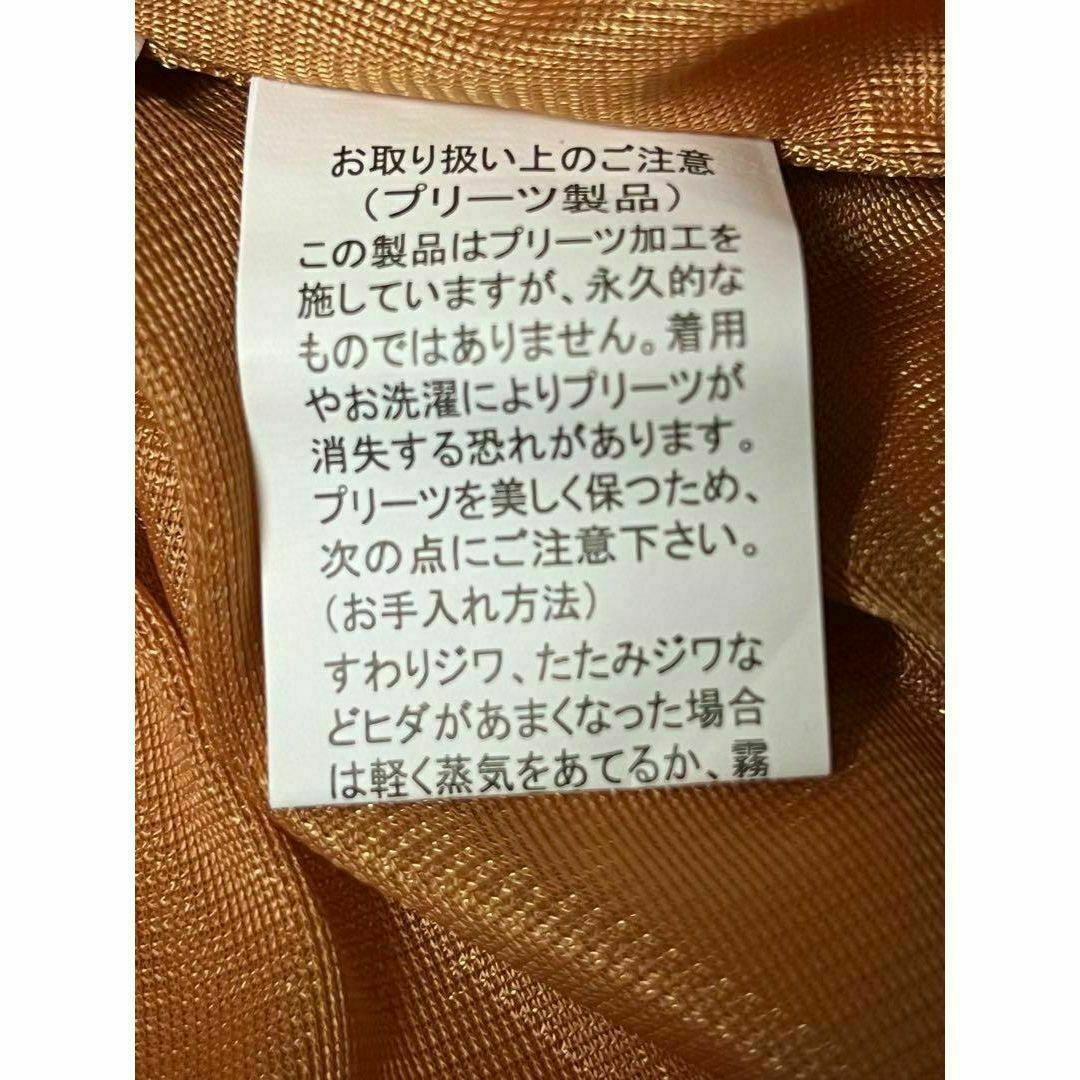 お取り扱い上のご注意
(プリーツ製品)
この製品はプリーツ加工を
施していますが、永久的な
ものではありません。着用
やお洗濯によりプリーツが
消失する恐れがあります。
プリーツを美しく保つため、
次の点にご注意下さい。
(お手入れ方法)
すわりジワ、たたみジワな
どヒダがあまくなった場合
は軽く蒸気をあてるか、霧